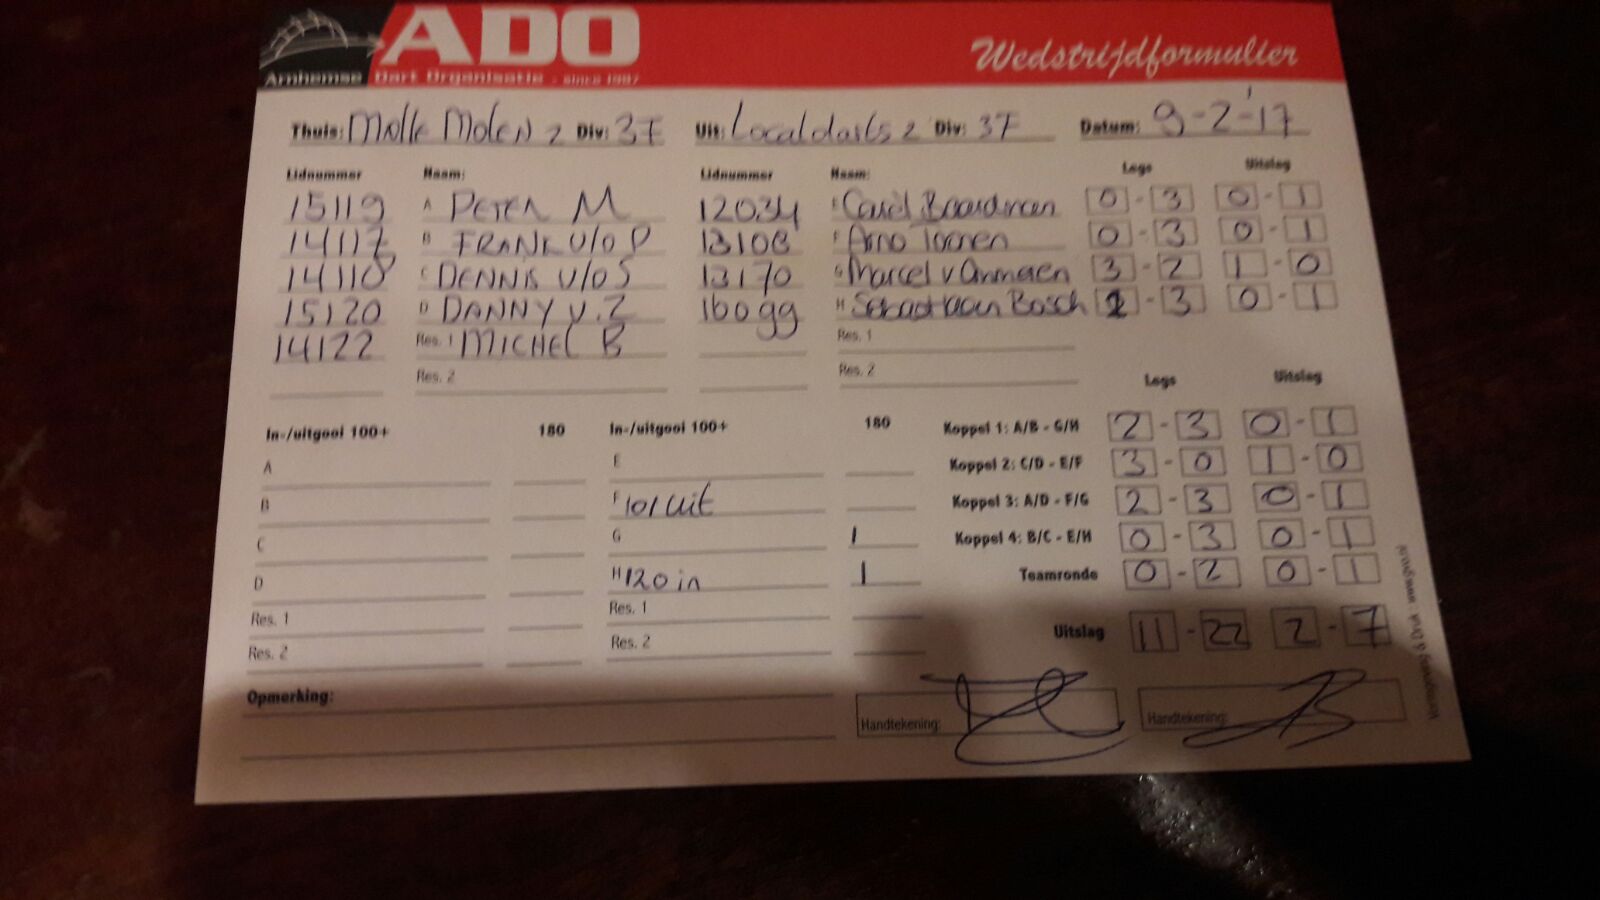 ADO
Arnhemse Dart Organisatie - since 1987
Wedstrijdformulier
Thuis: Malle Molen 2 Div: 3F Uit: Localdarts 2 Div: 3F Datum: 9-2-'17
Lidnummer Naam: Lidnummer Naam: Legs Uitslag
15119 A PETER M 12034 E Carél Boardman 0 - 3 0 - 1
14117 B FRANK V/O P 13108 F Arno Tonnen 0 - 3 0 - 1
14118 C DENNIS V/O S 13170 G Marcel v Ommeren 3 - 2 1 - 0
15120 D DANNY V. Z 16099 H Sebastiaan Bosch - 3 0 - 1
14122 Res. 1 MICHEL B Res. 1
Res. 2 Res. 2
Legs Uitslag
In-/uitgooi 100+ 180 In-/uitgooi 100+ 180 Koppel 1: A/B - G/H 2 - 3 0 - 1
A E Koppel 2: C/D - E/F 3 - 0 1 - 0
B F 101 uit Koppel 3: A/D - F/G 2 - 3 0 - 1
C G 1 Koppel 4: B/C - E/H 0 - 3 0 - 1
D H 120 in 1 Teamronde 0 - 2 0 - 1
Res. 1 Res. 1
Res. 2 Res. 2 Uitslag 11 - 22 2 - 7
Opmerking:
Handtekening: Handtekening:
Vormgeving & Druk www.gvo.nl